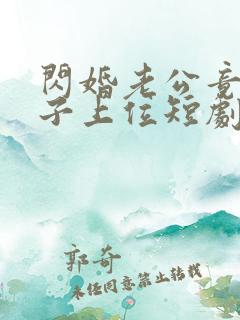 閃婚老公竟
子上位短劇
郭奇
未經同意禁止轉載